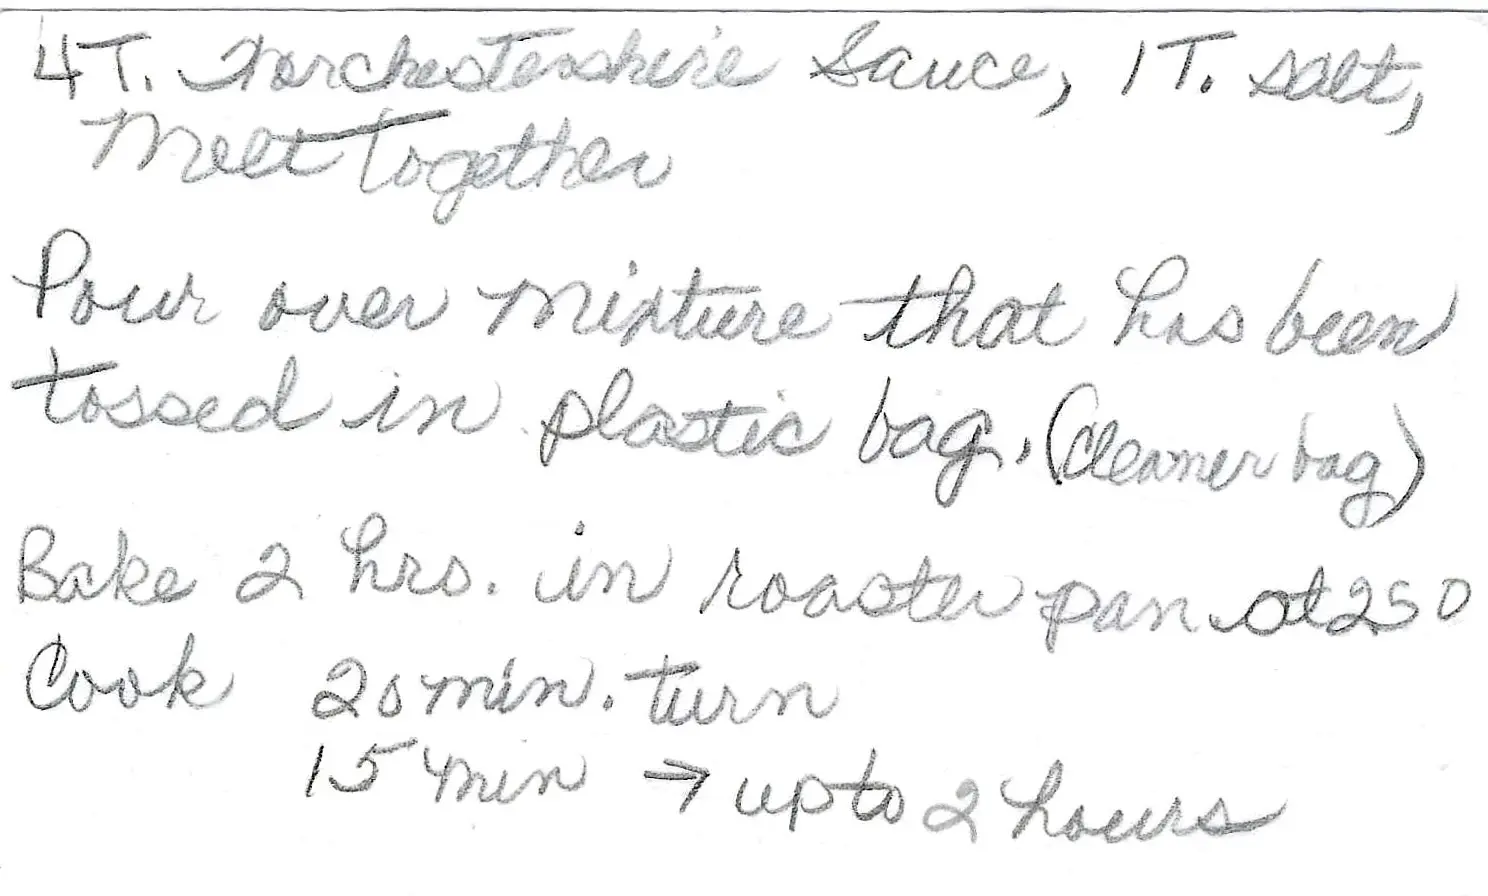 4T. Worchestershire Sauce, 1T. salt,
Melt Together
Pour over mixture that has been
tossed in plastic bag. (cleaner bag)
Bake 2 hrs. in roaster pan at 250
Cook 20 min. turn
15 min → up to 2 hours